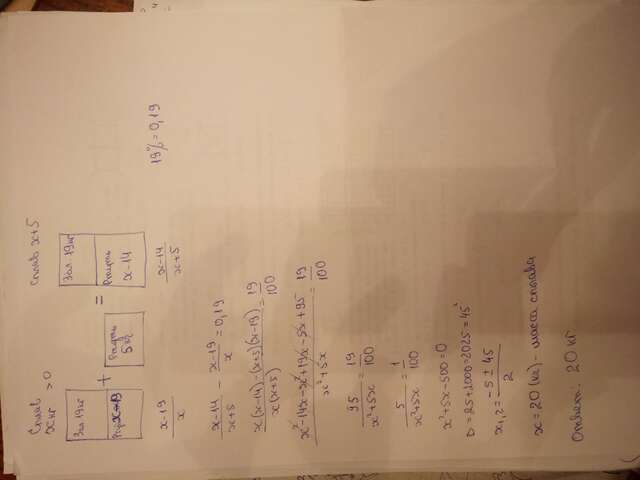 Сплав
x кг > 0
Сплав x+5
Зол. 19кг
x-19
+
Ртуть
5 кг
=
Зол. 19кг
Ртуть
x-14
x-19/x
x-14/x+5
19% = 0,19
x-14/x+5 - x-19/x = 0,19
x(x-14)-(x+5)(x-19)/x(x+5) = 19/100
x²-14x-x²+19x-5x+95/x²+5x = 19/100
95/x²+5x = 19/100
5/x²+5x = 1/100
x²+5x-500=0
D=25+2000=2025=45²
x₁,₂ = -5 ± 45/2
x=20 (кг) - масса сплава
Ответ: 20 кг